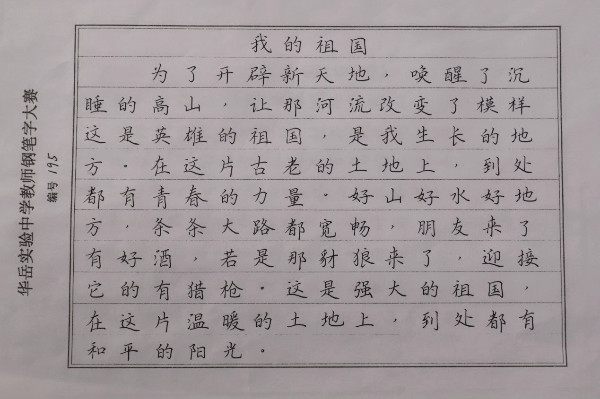 华岳实验中学教师钢笔字大赛
编号 195
我的祖国
为了开辟新天地，唤醒了沉
睡的高山，让那河流改变了模样
这是英雄的祖国，是我生长的地
方。在这片古老的土地上，到处
都有青春的力量。好山好水好地
方，条条大路都宽畅，朋友来了
有好酒，若是那豺狼来了，迎接
它的有猎枪。这是强大的祖国，
在这片温暖的土地上，到处都有
和平的阳光。